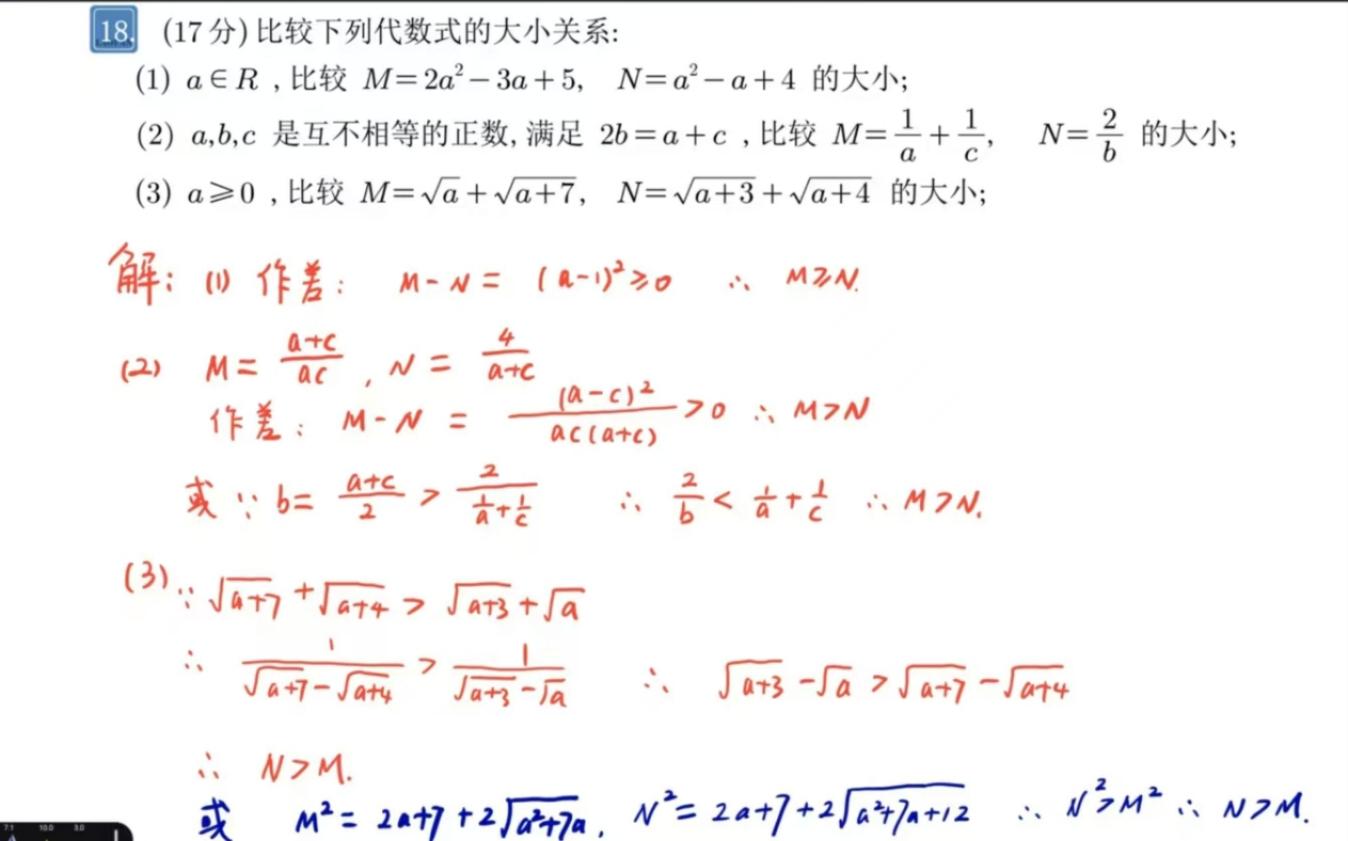 18. (17分)比较下列代数式的大小关系:
(1) a∈R ,比较 M=2a²−3a+5, N=a²−a+4 的大小;
(2) a,b,c 是互不相等的正数,满足 2b=a+c ,比较 M=1/a+1/c, N=2/b 的大小;
(3) a⩾0 ,比较 M=√a+√(a+7), N=√(a+3)+√(a+4) 的大小;
解: (1) 作差: M-N= (a-1)²⩾0 ∴ M⩾N.
(2) M= (a+c)/(ac) , N= 4/(a+c)
作差: M-N = (a-c)²/(ac(a+c)) >0 ∴ M>N
或 ∵ b= (a+c)/2 > 2/(1/a+1/c) ∴ 2/b < 1/a+1/c ∴ M>N.
(3) ∵ √(a+7)+√(a+4) > √(a+3)+√a
∴ 1/(√(a+7)-√(a+4)) > 1/(√(a+3)-√a) ∴ √(a+3)-√a > √(a+7)-√(a+4)
∴ N>M.
或 M²= 2a+7+2√(a²+7a), N²= 2a+7+2√(a²+7a+12) ∴ N²>M² ∴ N>M.
7.1 10.0 3.0